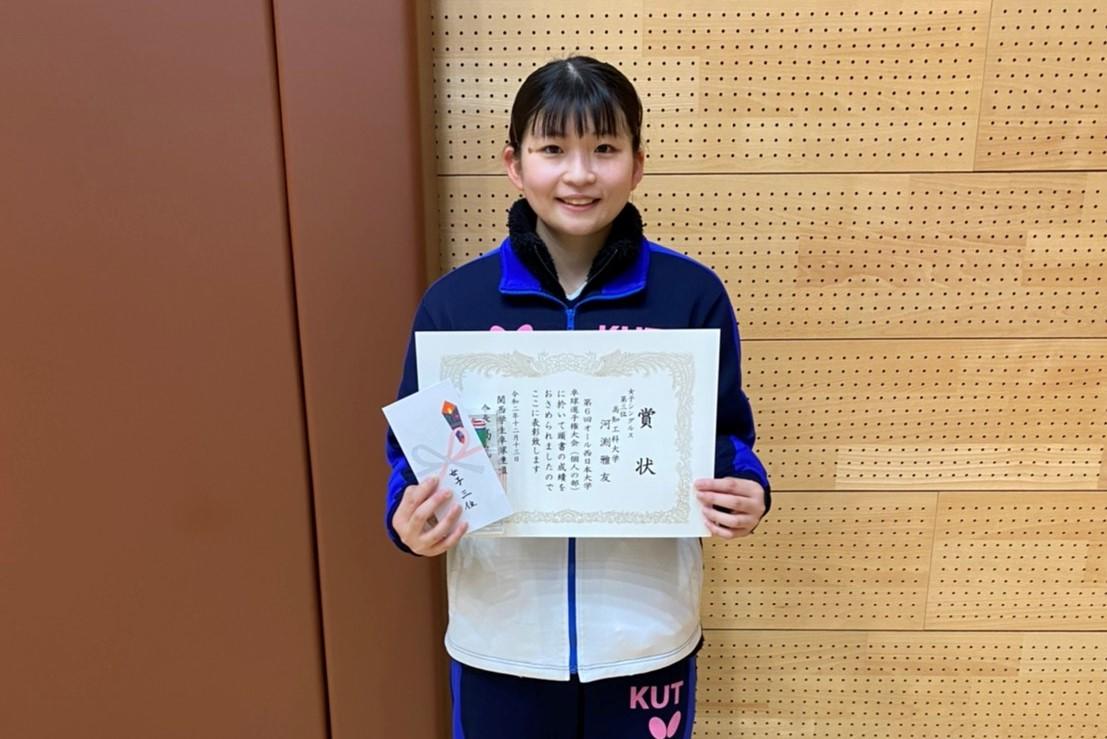 KUT
賞状
女子シングルス
第三位
高知工科大学
河渕雅友
第6回オール西日本大学
卓球選手権大会(個人の部)
に於いて頭書の成績を
おさめられましたので
ここに表彰致します
令和二年十二月十三日
関西学生卓球連盟
女子三位
KUT